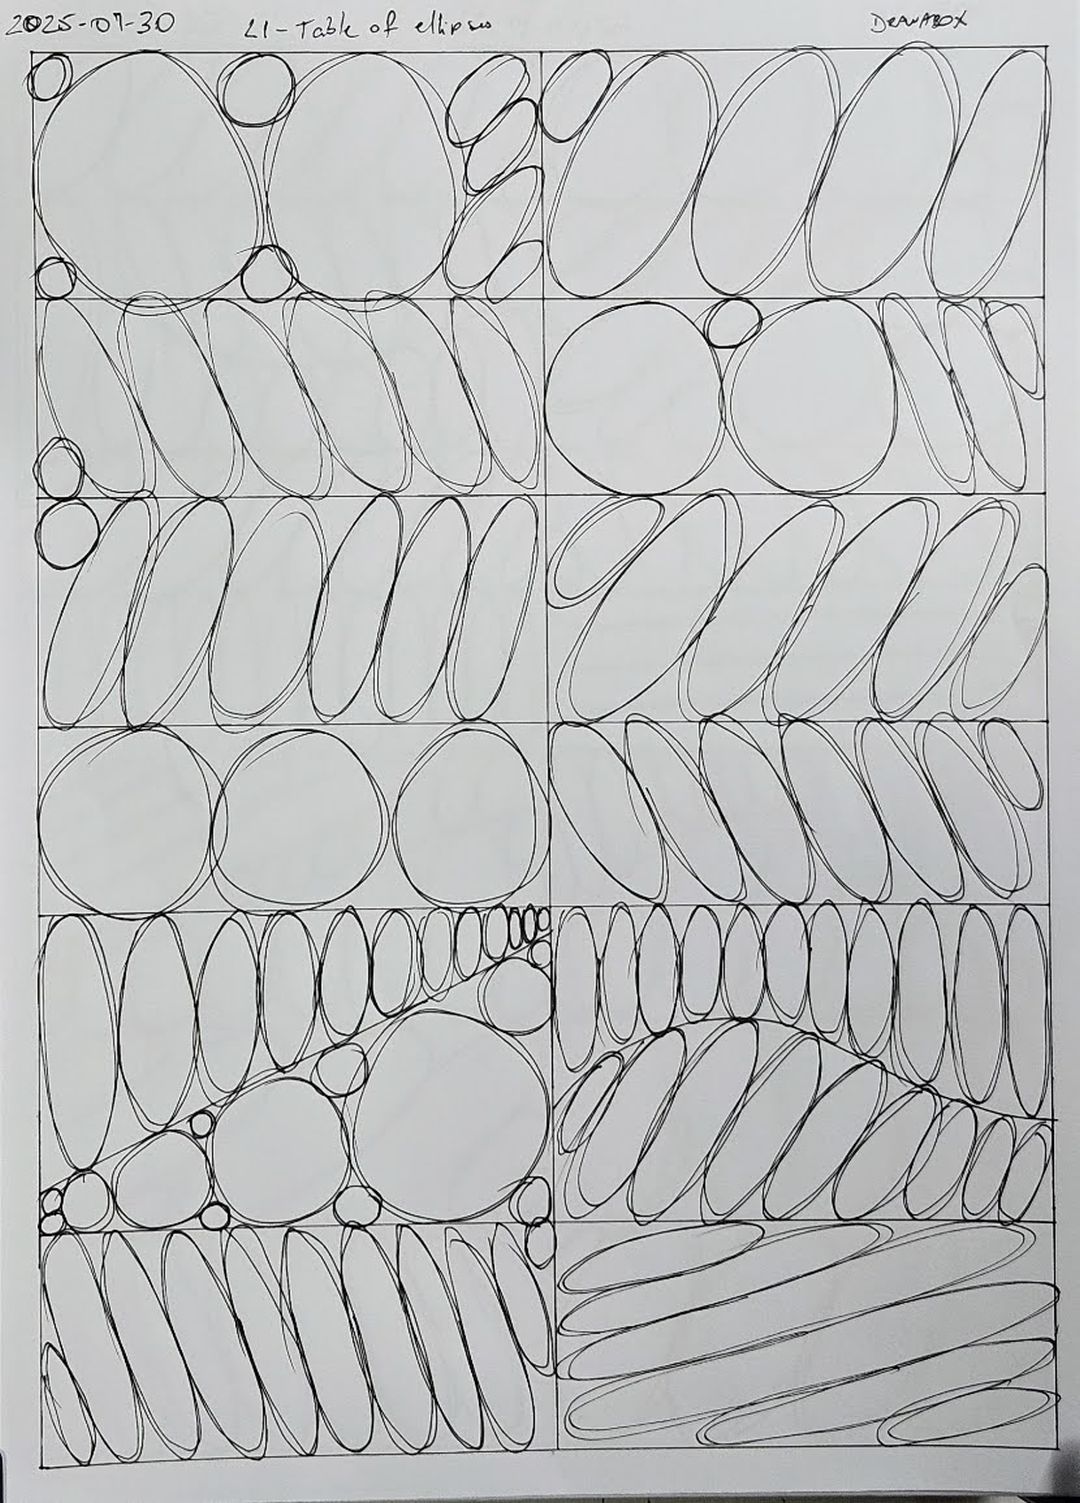 2025-07-30 L1-Table of ellipses DRAWABOX